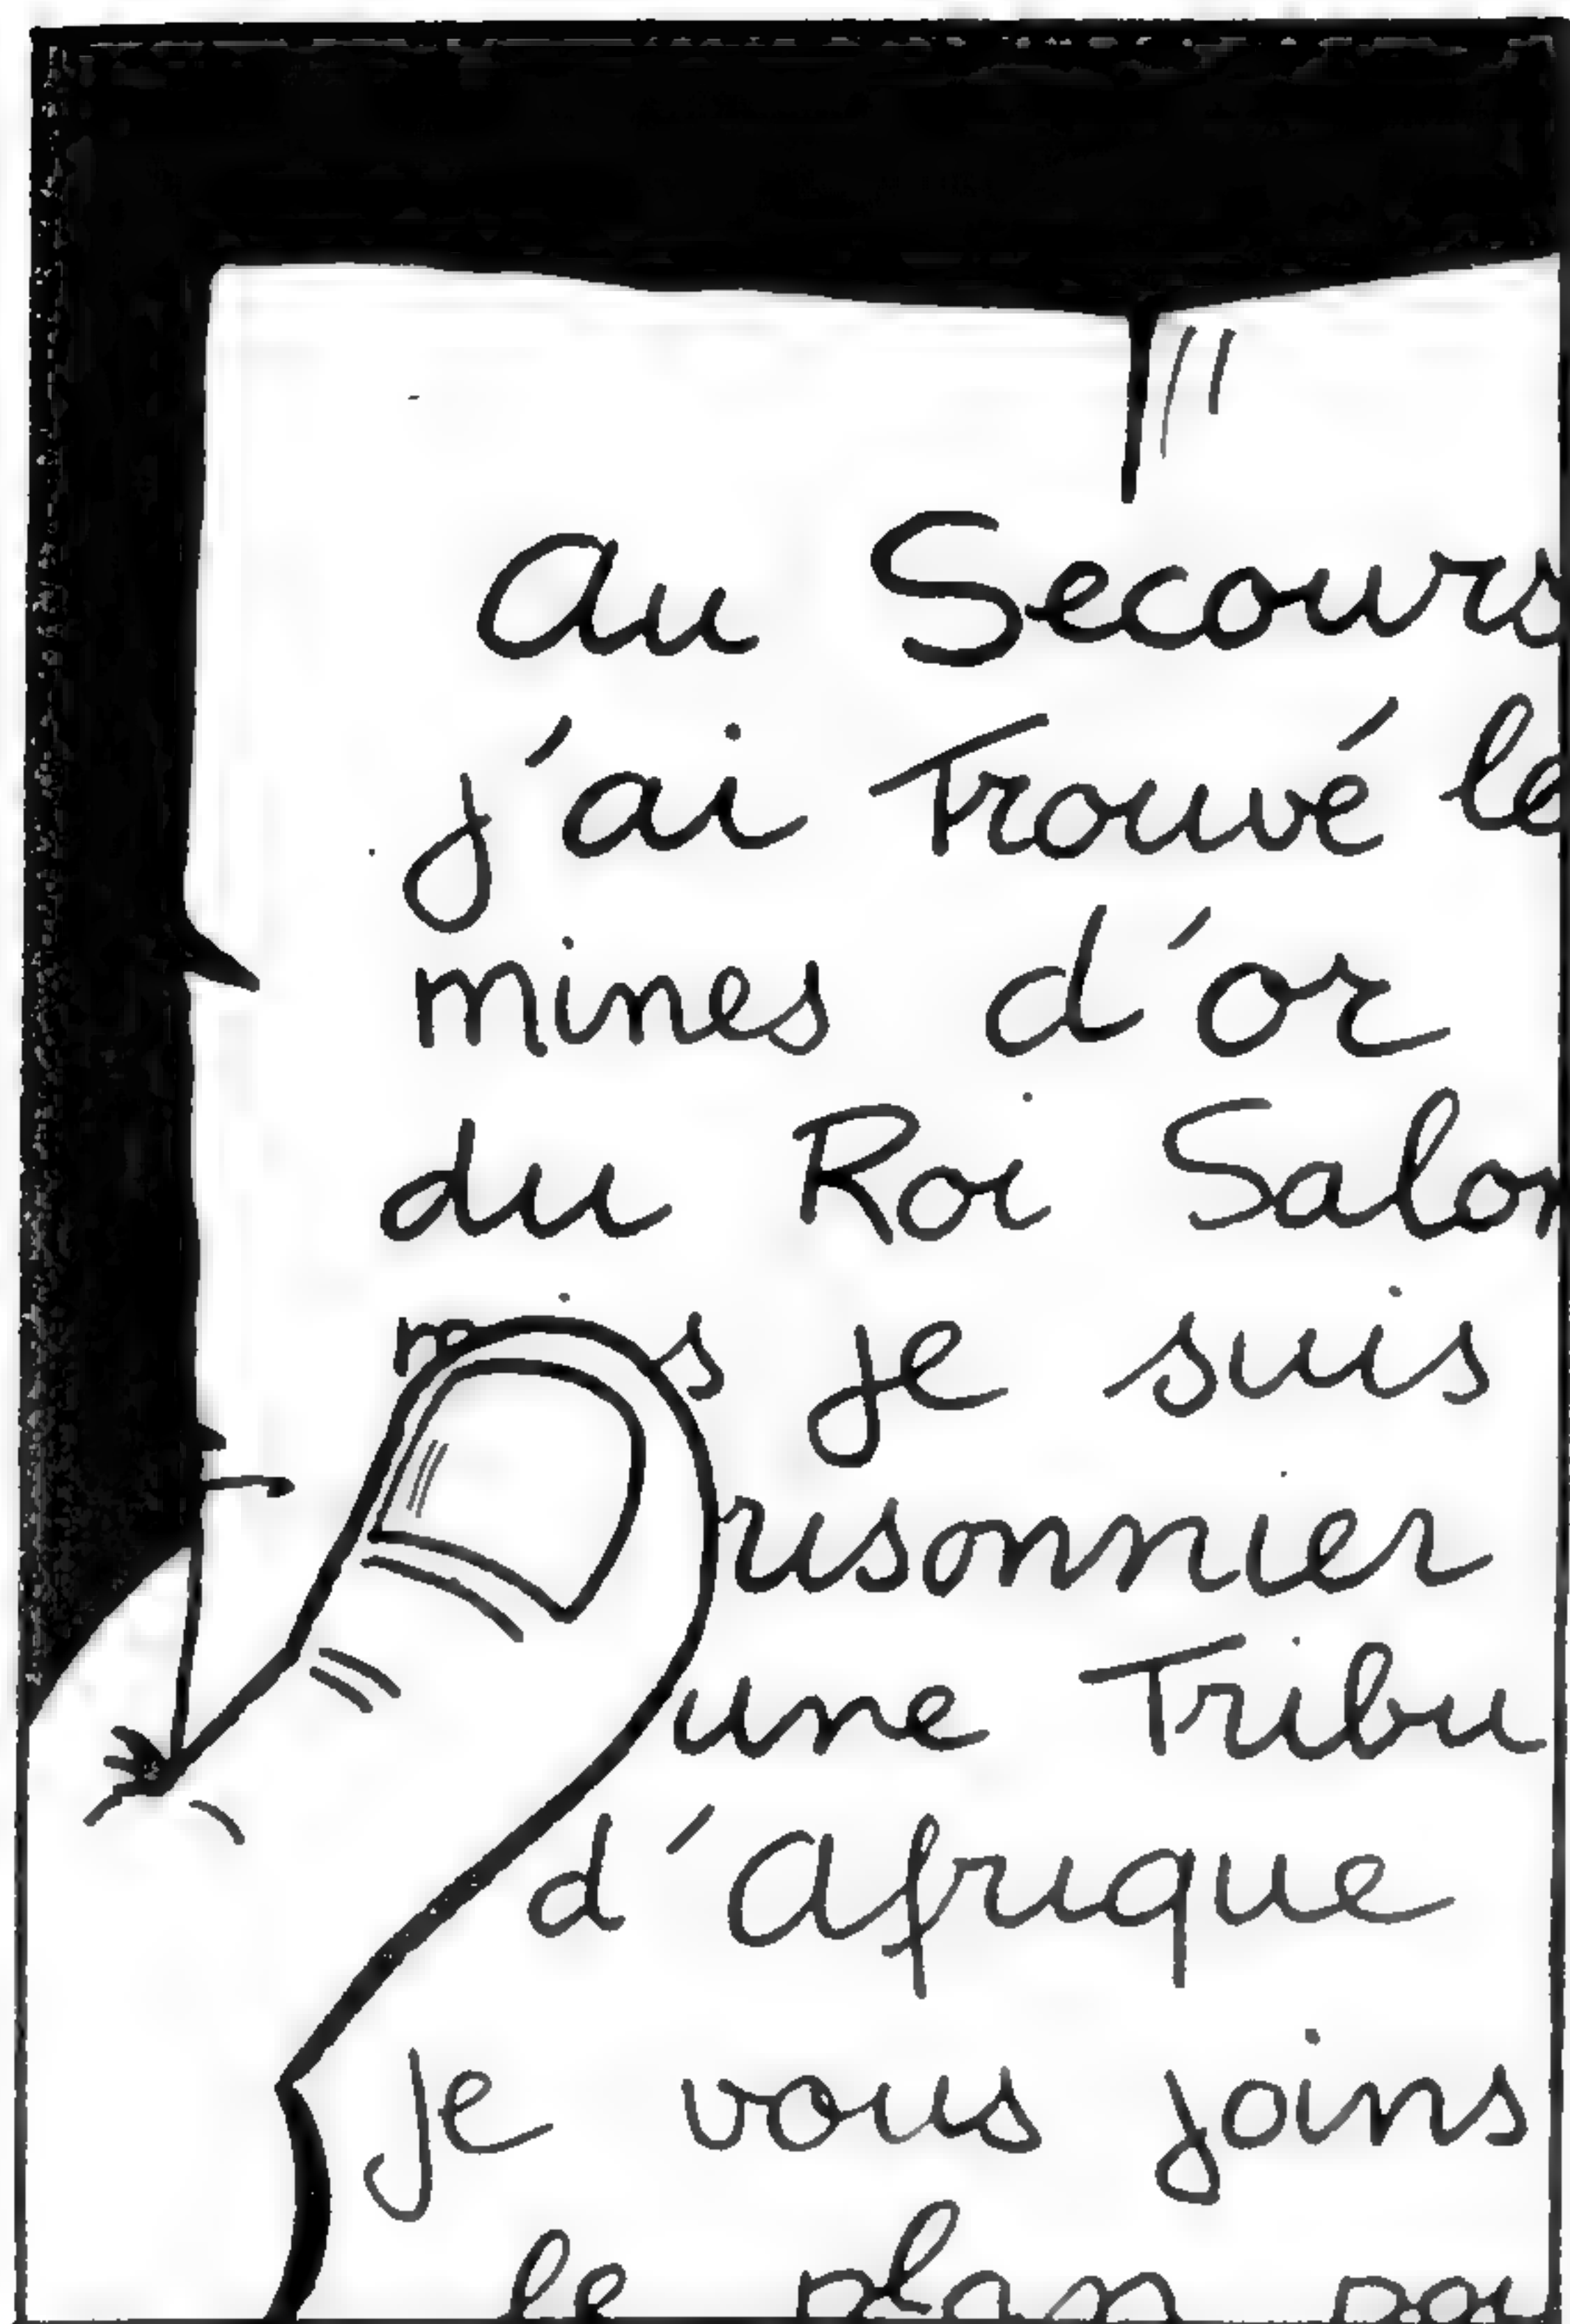 Au Secours
j'ai Trouvé le
mines d'or
du Roi Salom
je suis
risonnier
une Tribu
d'Afrique
je vous joins
le plan pou